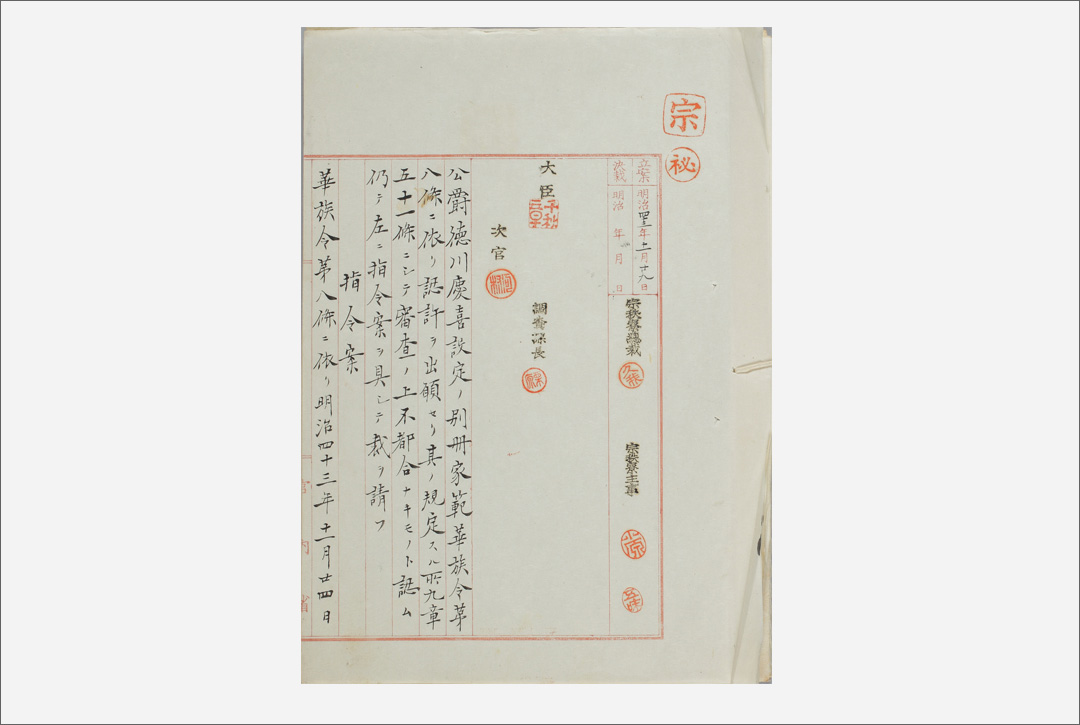 宗
秘
立案 明治四三年十二月廿九日
決裁 明治 年 月 日
宗秩寮総裁
宗秩寮主事
大臣
調査課長
次官
公爵徳川慶喜設定ノ別冊家範華族令第
八條ニ依リ認許ヲ出願セリ其ノ規定スル所九章
五十一條ニシテ審査ノ上不都合ナキモノト認ム
仍テ左ニ指令案ヲ具シテ裁ヲ請フ
指令案
華族令第八條ニ依リ明治四十三年十二月廿四日
宮内省